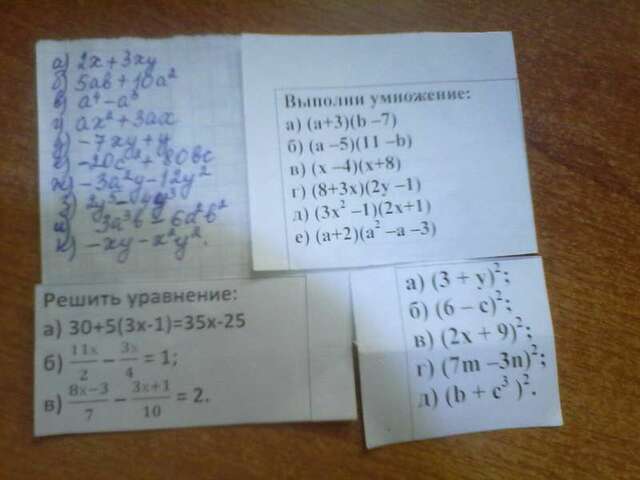 а) 2x + 3xy
б) 5ab + 10a²
в) a⁴ – a³
г) ax² + 3ax
д) –7xy + y
е) –20c² + 80bc
ж) –3a²y – 12y²
з)
и) 3a³b – 6a²b²
к) –xy – x²y².
Выполни умножение:
а) (a+3)(b –7)
б) (a –5)(11 –b)
в) (x –4)(x+8)
г) (8+3x)(2y –1)
д) (3x² –1)(2x+1)
е) (a+2)(a² –a –3)
Решить уравнение:
а) 30+5(3x-1)=35x-25
б) 11x/2 – 3x/4 = 1;
в) 8x–3/7 – 3x+1/10 = 2.
а) (3 + y)²;
б) (6 – c)²;
в) (2x + 9)²;
г) (7m –3n)²;
д) (b + c³ )².